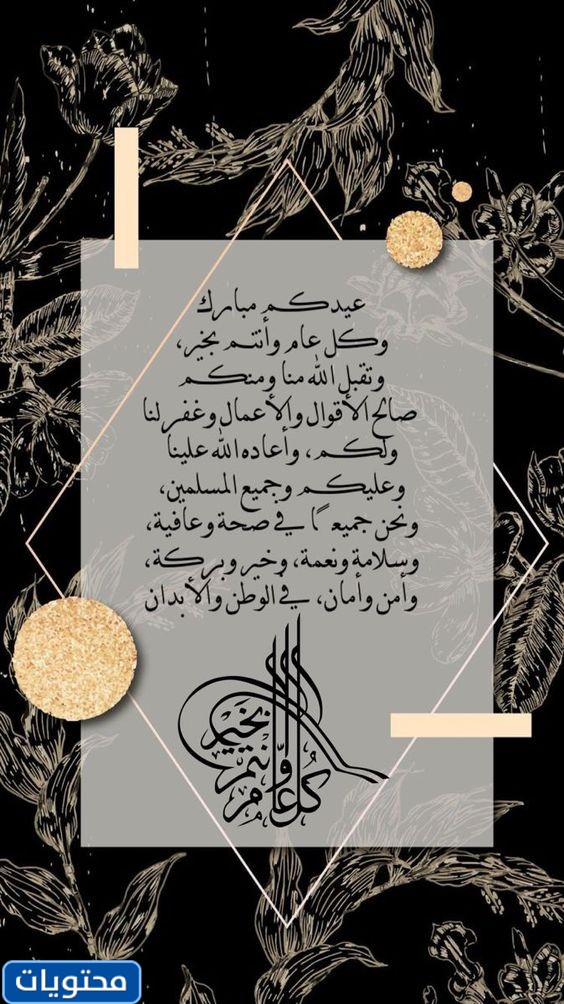 عيدكم مبارك
وكل عام وأنتم بخير،
وتقبل الله منا ومنكم
صالح الأقوال والأعمال وغفر لنا
ولكم، وأعاده الله علينا
وعليكم وجميع المسلمين،
ونحن جميع ًا في صحة وعافية،
وسلامة ونعمة، وخير وبركة،
وأمن وأمان، في الوطن والأبدان
كُل عام وأنتم بخير
محتويات